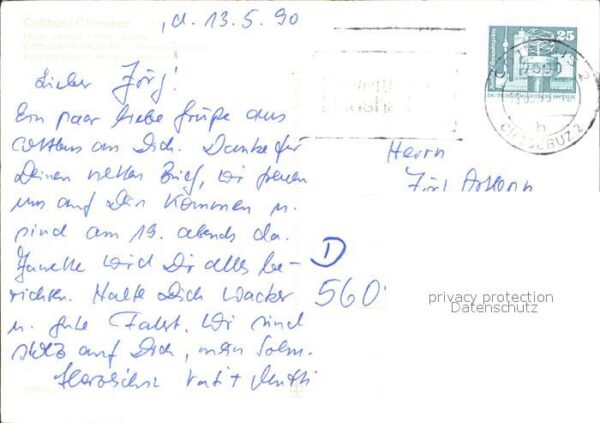 Cottbus/Chosebuz
, d. 13.5.90
Lieber Jörg!
Ein paar liebe Grüße aus
Cottbus an Dich. Danke für
Deinen netten Brief, wir freuen
uns auf Dein Kommen u.
sind am 19. abends da.
wird Dir alles be-
richten. Halte Dich wacker
u. gute Fahrt. Wir sind
stolz auf Dich, mein Sohn.
Herzlichst Vati + Mutti
Herrn
Jörg
D
560
25
7500
CHOSEBUZ 2
h
privacy protection
Datenschutz